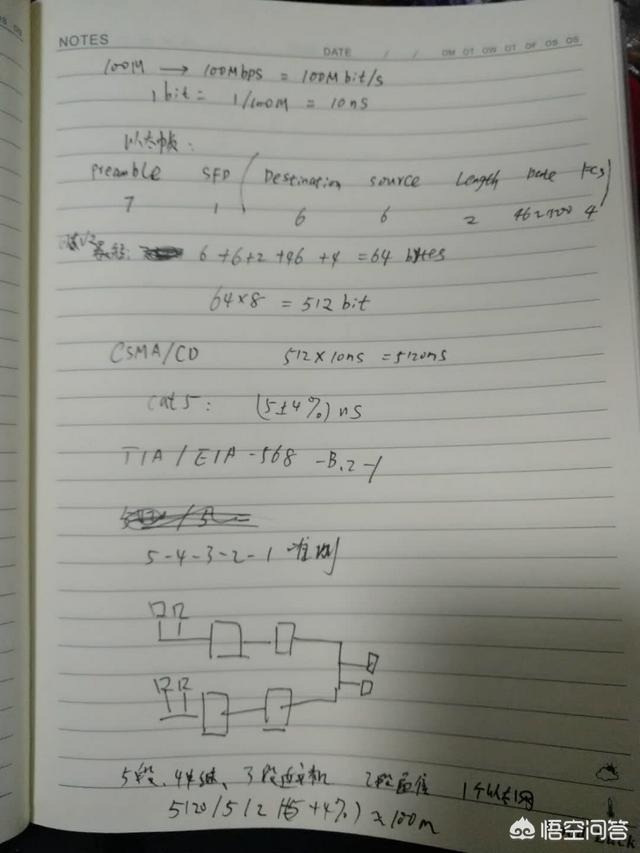 NOTES
DATE / /
OM OT OW OT OF OS OS
100M → 100Mbps = 100Mbit/s
1 bit = 1/100M = 10ns
以太帧:
Preamble SFD (Destination source Length Date FCS)
7 1 6 6 2 46~1500 4
6+6+2+46+4=64 bytes
64×8 = 512 bit
CSMA/CD 512×10ns=5120ns
Cat5: (5±4%)ns
TIA/EIA-568-B.2-1
5-4-3-2-1 准则
12 12
12 12
5段、4中继、3段 2段 1个以太网
5120/5/2 (5+4%) ≈100m
悟空问答